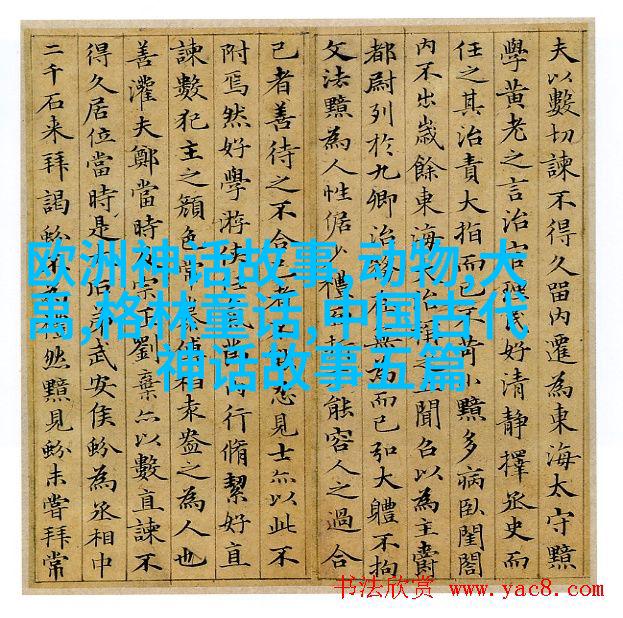 夫以數切諫不得久留內遷為東海太守黯
學黃老之言治官民好清靜擇丞史而
任之其治責大指而已不苛小黯多病臥閨閤
內不出歲餘東海大治稱之上聞召以為主爵
都尉列於九卿治務在無為而已弘大體不拘
文法黯為人性倨少禮能容人之過合
己者善待之不合己者不忍見士亦以此不
附焉然好學游俠任氣行脩絜好直
諫數犯主之顏色常慕傅柏袁盎之為人也
善灌夫鄭當時及宗正劉棄亦以數直諫不
得久居位當時是太后弟武安侯蚡為丞相中
二千石来拜謁蚡不禮然黯見蚡未嘗拜常
欧洲神话故事,动物,大
禹,格林童话,中国古代
神话故事五篇
书法欣赏 www.yac8.com